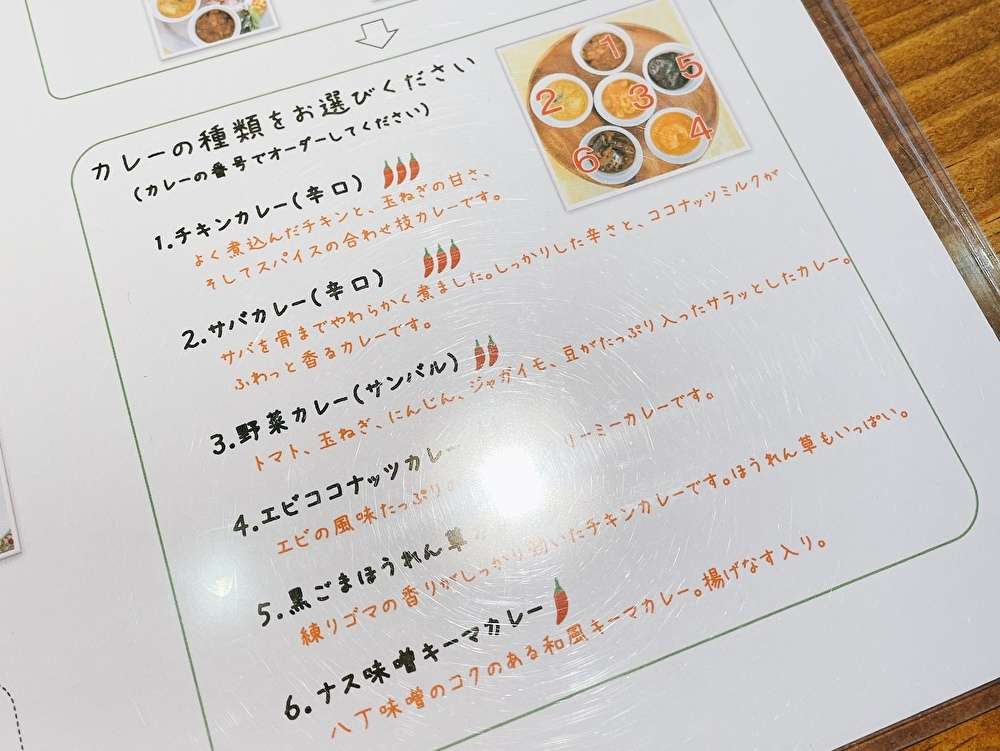 カレーの種類をお選びください
(カレーの番号でオーダーしてください)
1
2
3
4
5
6
1.チキンカレー(辛口)
よく煮込んだチキンと、玉ねぎの甘さ、
そしてスパイスの合わせ技カレーです。
2.サバカレー(辛口)
サバを骨までやわらかく煮ました。しっかりした辛さと、ココナッツミルクが
ふわっと香るカレーです。
3.野菜カレー(サンバル)
トマト、玉ねぎ、にんじん、ジャガイモ、豆がたっぷり入ったサラッとしたカレー。
4.エビココナッツカレー
エビの風味たっぷり リーミーカレーです。
5.黒ごまほうれん草
練りゴマの香りがしっかり効いたチキンカレーです。ほうれん草もいっぱい。
6.ナス味噌キーマカレー
八丁味噌のコクのある和風キーマカレー。揚げなす入り。